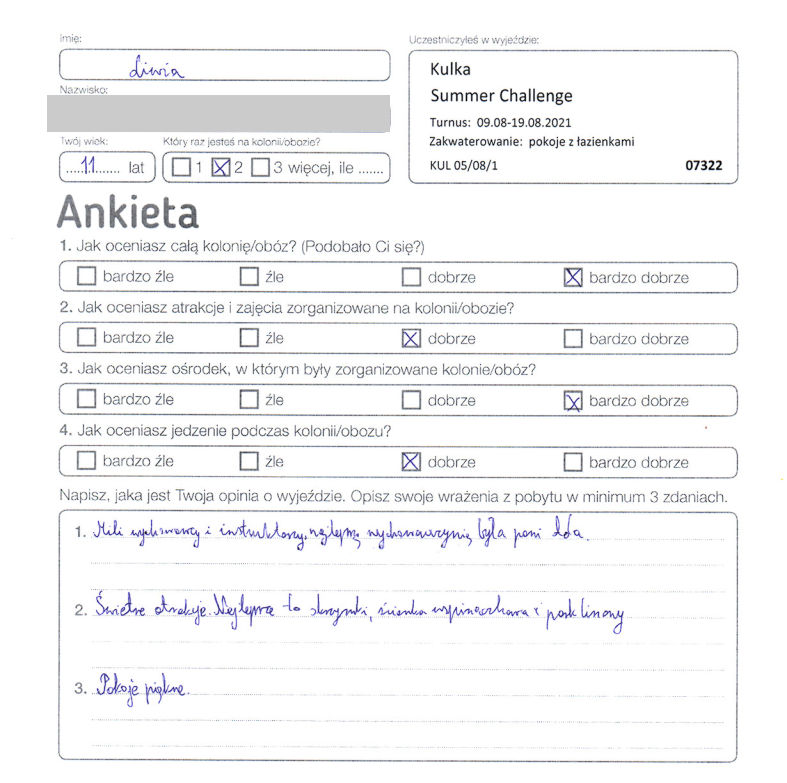 Imię:
Liwia
Nazwisko:
Twój wiek:
Który raz jesteś na kolonii/obozie?
11 lat
1 2 3 więcej, ile .......
Uczestniczyłeś w wyjeździe:
Kulka
Summer Challenge
Turnus: 09.08-19.08.2021
Zakwaterowanie: pokoje z łazienkami
KUL 05/08/1 07322
Ankieta
1. Jak oceniasz całą kolonię/obóz? (Podobało Ci się?)
bardzo źle źle dobrze bardzo dobrze
2. Jak oceniasz atrakcje i zajęcia zorganizowane na kolonii/obozie?
bardzo źle źle dobrze bardzo dobrze
3. Jak oceniasz ośrodek, w którym były zorganizowane kolonie/obóz?
bardzo źle źle dobrze bardzo dobrze
4. Jak oceniasz jedzenie podczas kolonii/obozu?
bardzo źle źle dobrze bardzo dobrze
Napisz, jaka jest Twoja opinia o wyjeździe. Opisz swoje wrażenia z pobytu w minimum 3 zdaniach.
1. Mili wychowawcy i instruktorzy, najlepszą wychowawczynią była pani Ada.
2. Świetne atrakcje. Najlepsze to skrzynki, ścianka wspinaczkowa i park linowy
3. Pokoje piękne.